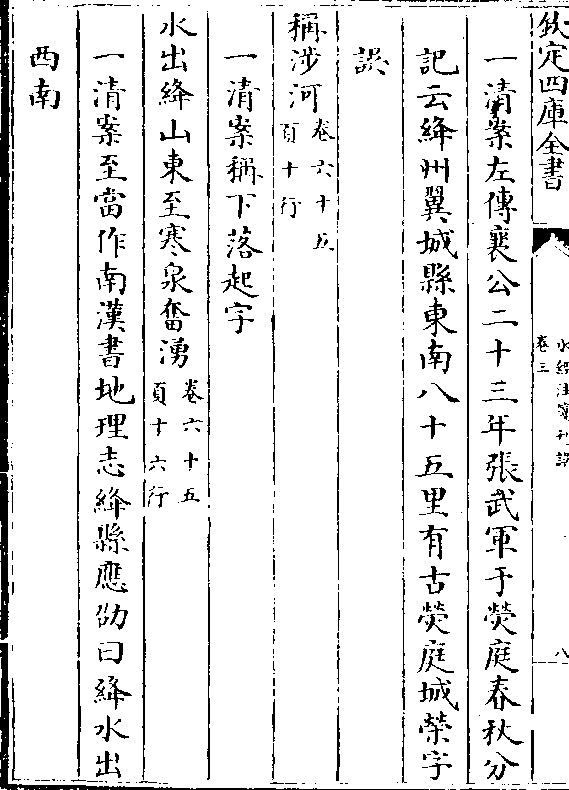 欽定四庫全書
水經注箋刊誤
卷三
八
一清案左傳襄公二十三年張武軍于熒庭春秋分
記云絳州翼城縣東南八十五里有古熒庭城榮字
誤
稱涉河卷六十五
頁十行
一清案稱下落起字
水出絳山東至寒泉奮湧卷六十五
頁十六行
一清案至當作南漢書地理志絳縣應劭曰絳水出
西南